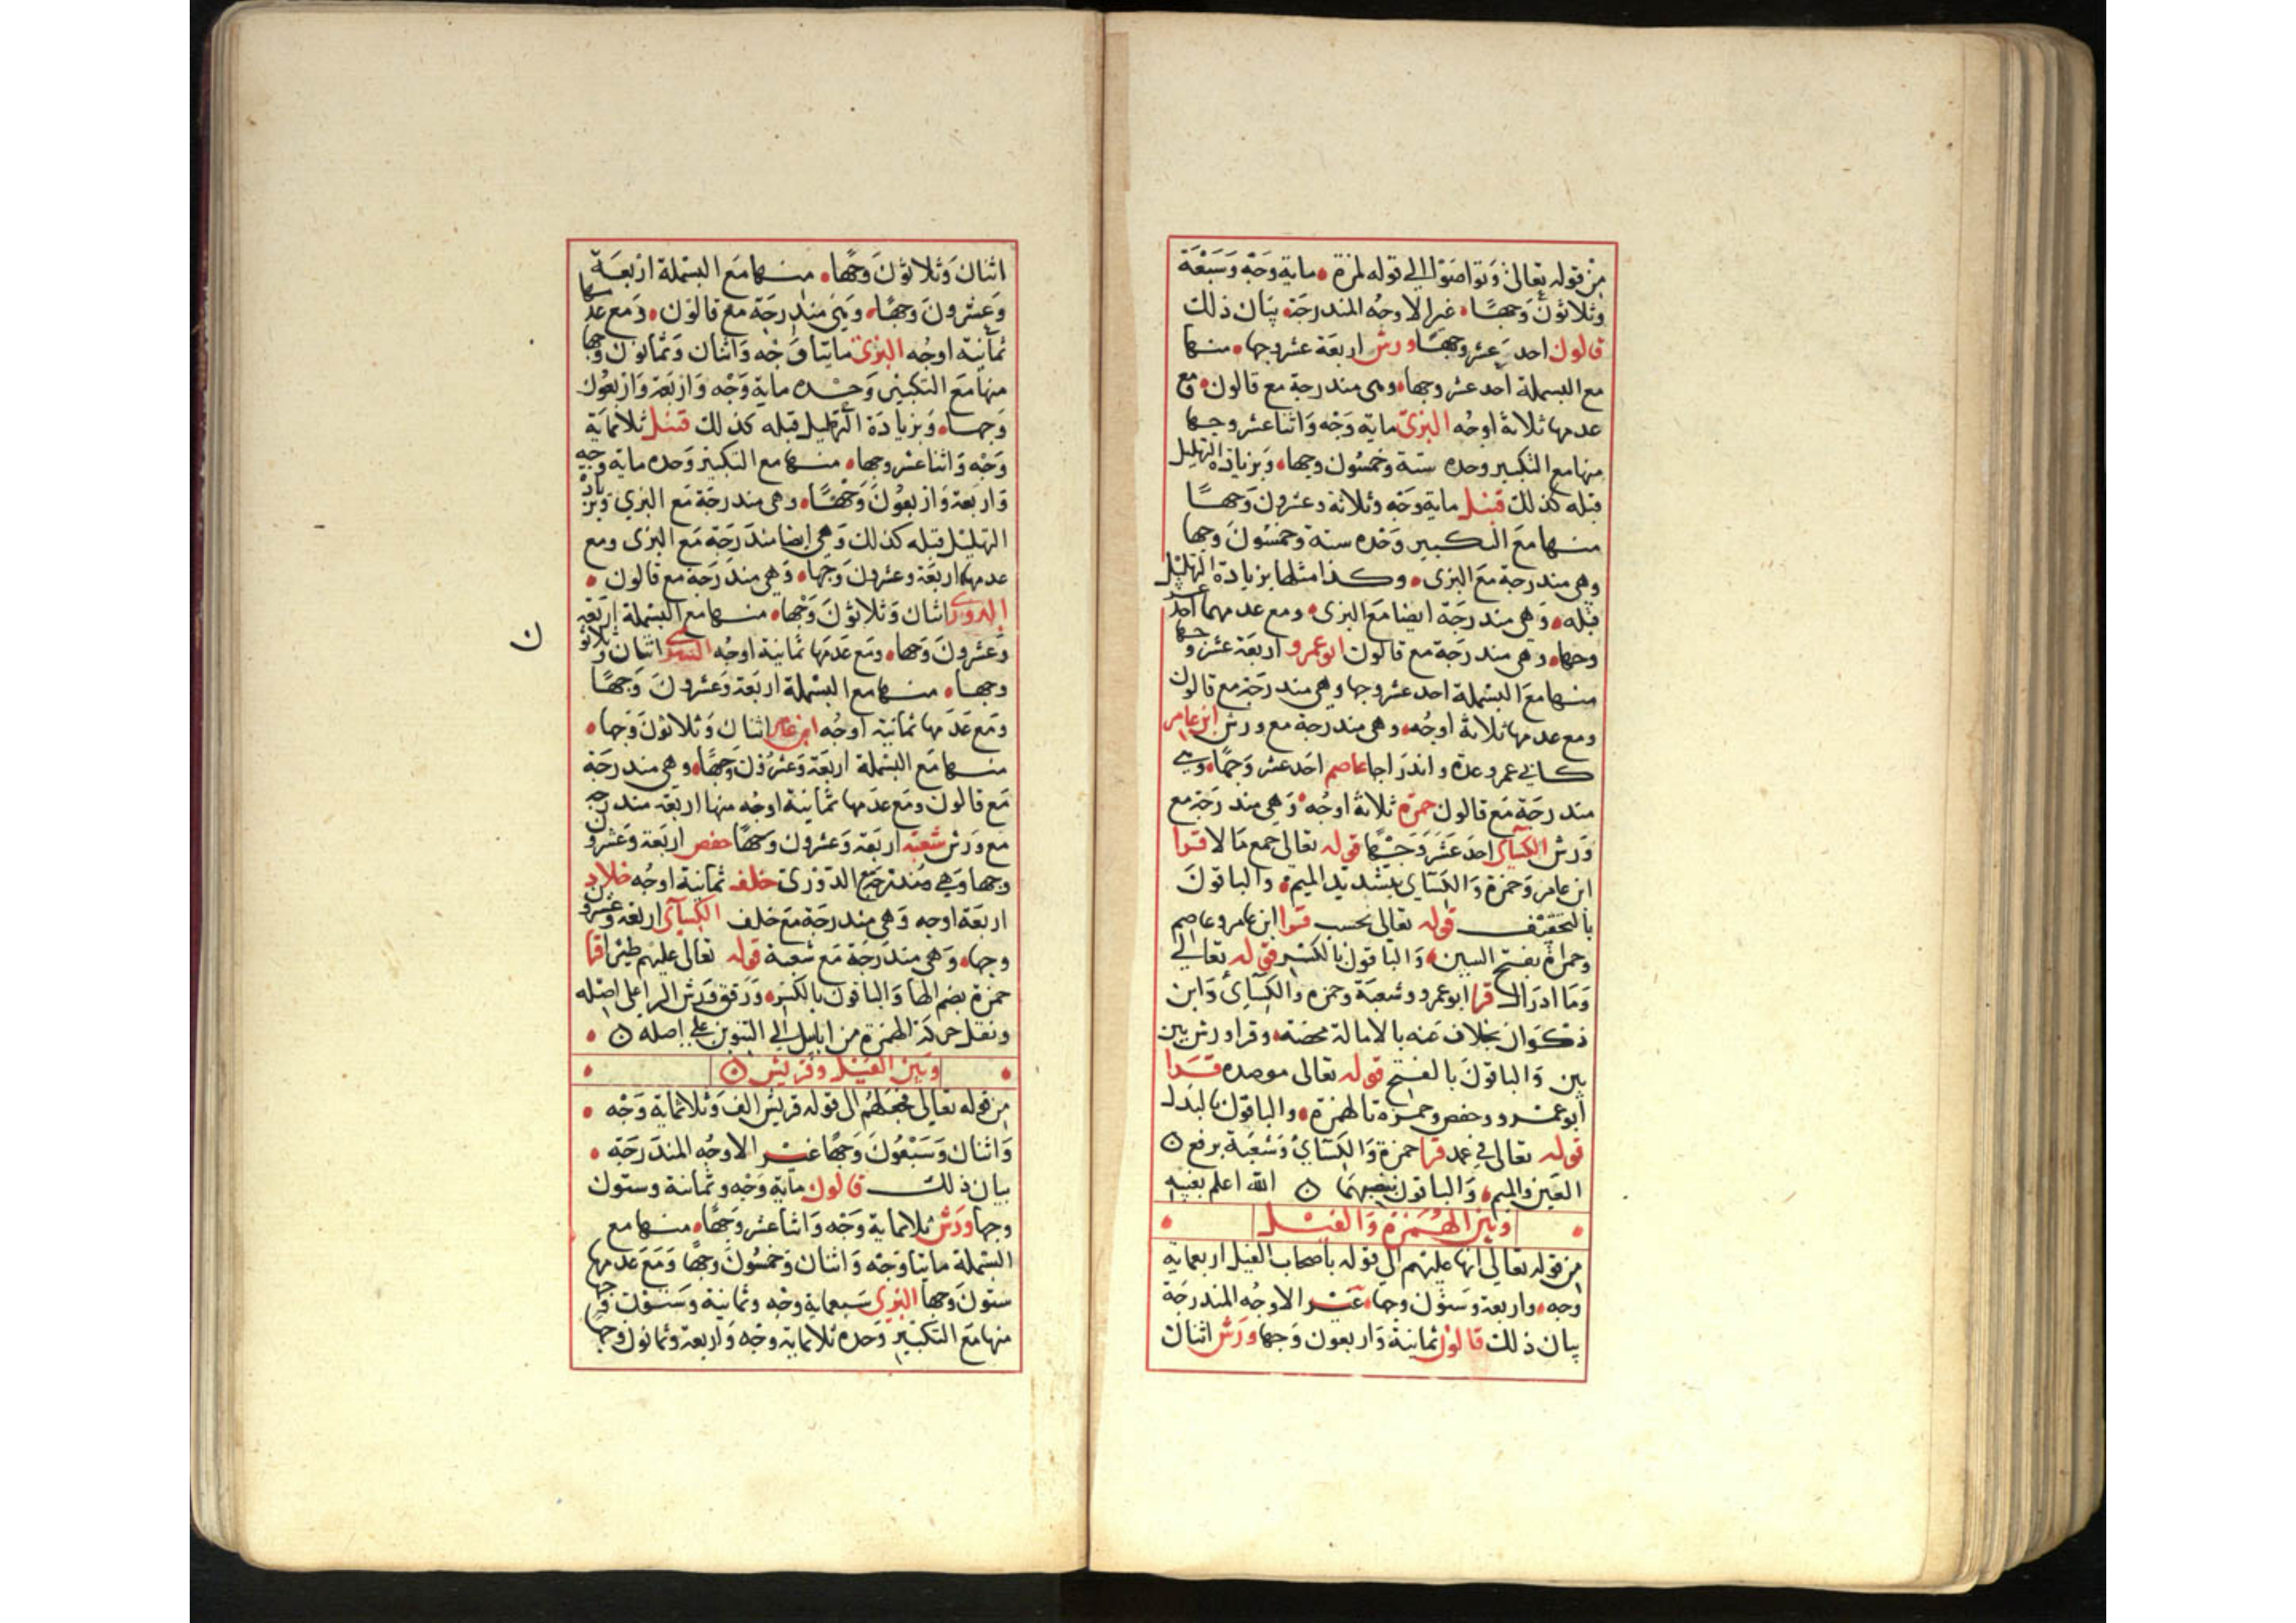 من قوله تعالى وَتواصَوْا الي قوله لمزة • ماية وَجْه وَسَبْعَة
وثلاثونَ وَجهًا • غير الاوجُه المندرجَة • بيَان ذلك
قالون احد عشر وجهًا ورش اربعة عشر وجها • منها
مع البسملة أحد عشر وجها • وهي مندرجة مع قالون • ومع
عدمها ثلاثة اوجُه البزي ماية وَجْه وَاثنا عشر وجها
منها مع التكبير وحده ستة وخمسُون وجها • وَبزيادة التهليل
قبله كذلك قنبل ماية وَجْه وثلاثة وعشرونَ وَجهًا
منها مَع التكبير وَحْده ستة وخمسُونَ وجها
وهي مندرجة مَع البزي • وكذا مثلها بزيادة التهليل
قبله • وَهي مندرجَة ايضا مَع البزي • ومع عدمهما احد عشر
وجها • وهي مندرجَة مع قالون ابو عمرو اربعَة عشر وجها
منها مَع البسملة احد عشر وجها وهي مندرجَة مع قالون
ومع عدمها ثلاثة اوجُه • وهي مندرجة مع ورش ابن عامر
كابي عمرو عدة واندرَاجا عاصم احَد عشر وَجهًا • وهي
مندرجَة مَع قالون حمزة ثلاثة اوجُه • وَهي مندرَجَة مع
وَرش الكسآي احدَ عَشَر وَجْهًا قوله تعالى جمع مَالا قرا
ابن عامر وَحمزة وَالكسَاي بتشديد الميم • والباقونَ
بالتخفِيْف قوله تعالى يحسب قرا ابن عامر وعاصم
وحمزة بفتح السين • وَالباقون بالكسْر قوله تعالي
وَمَا ادرَاك قرا ابو عمرو وشعبَة وحمزه وَالكسَآئ وَابن
ذكوَان بخلاف عَنه بالامالة محضَة • وقرا ورش بين
بين وَالباقونَ بالفتح قوله تعالى موصده قرا
أبو عمرو وحفص وحمزه بالهمزة • والباقون بالبَدل
قوله تعالى في عمد قرا حمزة وَالكسَايُ وَشعْبَة برفع ن
العَين وَالميم • وَالباقون بنصبهمَا ن الله اعلم بغيبه
وبين الهُمَزة وَالفيل
من قوله تعالي انها عليهم الي قوله بأصحاب الفيل اربعماية
وجه • واربعة وَستون وجهَا • غير الاوجُه المندرجَة
بيان ذلك قالون ثمانية وَاربعون وَجها ورَش اثنان
اثنان وَثلاثونَ وَجهًا • منها مَع البسْملة ارْبعَة
وَعشرونَ وَجهًا • وَهي مندرجَة مع قالون • وَمع عدمها
ثمَانية اوجُه البزي مايتا وَجْه وَاثنان وَثمانون وجها
منها مَع التكبير وَحْده ماية وَجْه وَاربَعة وَاربَعُون
وَجها • وَبزيادَة التهليل قبله كذلك قنبل ثلاثمَاية
وَجْه وَاثنا عشر وجها • منها مع التكبير وَحده ماية وجه
وَاربَعة وَاربعُونَ وَجْهًا • وهي مندرجَة مَع البزي وبزيادة
التهليل قبله كذلك وَهي ايضا مندَرَجَة مَع البزى ومع
عدمهما اربَعَة وعشرونَ وَجهَا • وَهي مندَرَجة مع قالون •
الدوري اثنان وَثلاثونَ وَجها • منها مع البسْملة اربَعة
وَعشرونَ وَجها • ومَع عدَمهَا ثمانية اوجُه السوسي اثنان وثلاثون
ن
وجهَا • منها مع البسْملة اربَعة وَعشرونَ وَجهًا
وَمَع عدَمها ثمانية اوجُه ابن عامر اثنان وَثلاثونَ وَجها •
منها مَع البسْملة اربَعة وَعشرُونَ وَجهًا • وهي مندرجَة
مَع قالون ومَع عدَمها ثمَانية اوجُه منها اربَعَة مندرجة
مع وَرَش شعْبَة اربَعَة وَعشرون وَجهًا حفص اربَعة وَعشرون
وجها وَهي مُندرجَة مع الدوري خلف ثمانية اوجُه خلاد
اربَعة اوجه وَهي مندرجَة مَع خلف الكسآئ اربَعة وعشرون
وجها • وَهي مندَرجَة مَع شعْبَة قوله تعالى عليهم طيرا قرا
حمزة بضم الها وَالباقون بالكسْر • وَرَقق وَرش الرا على اصْله
ونقل حركة الهمزة من ابابيل الي التنوين علي اصله ن •
وبَين الفيل وقريش ن
من قوله تعَالي فجعَلهُم الى قوله قريش الف وَثلاثماية وَجْه •
وَاثنان وَسَبْعُونَ وَجهًا غيْر الاوجُه المندَرجَة •
بيان ذلك قالون ماية وَجْه وثمانية وستون
وجها ورَش ثلاثماية وَجْه وَاثنا عشر وَجهًا • منها مع
البسْملة مايتا وَجْه وَاثنان وَخمسُونَ وَجهًا وَمَع عدَمها
ستونَ وجها البزي سَبعماية وجْه وثمانية وَستونَ وجها
منها مَع التكبير وَحده ثلاثماية وجْه وَاربعة وثمانون وجهًا